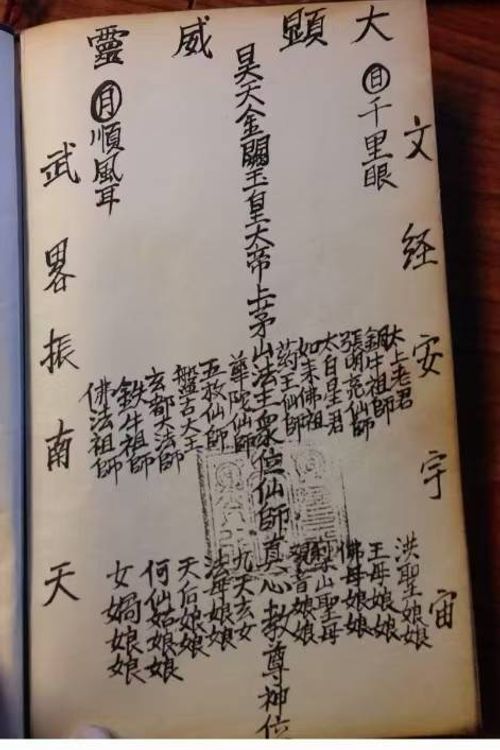 大顯威靈
文経安宇宙
日千里眼
太上老君
銅牛祖師
張明亮仙師
太白星君
如来佛祖
药王仙師
洪聖娘娘
王母娘娘
佛母娘娘
梨山聖母
观音娘娘
昊天金闕玉皇大帝上茅山法主眾位仙師真心教尊神位
華陀仙師
五救仙師
盤古大王
玄都大法師
鉄牛祖師
佛法祖師
九天玄女
法母娘娘
天后娘娘
何仙姑娘娘
女媧娘娘
月順風耳
武畧振南天